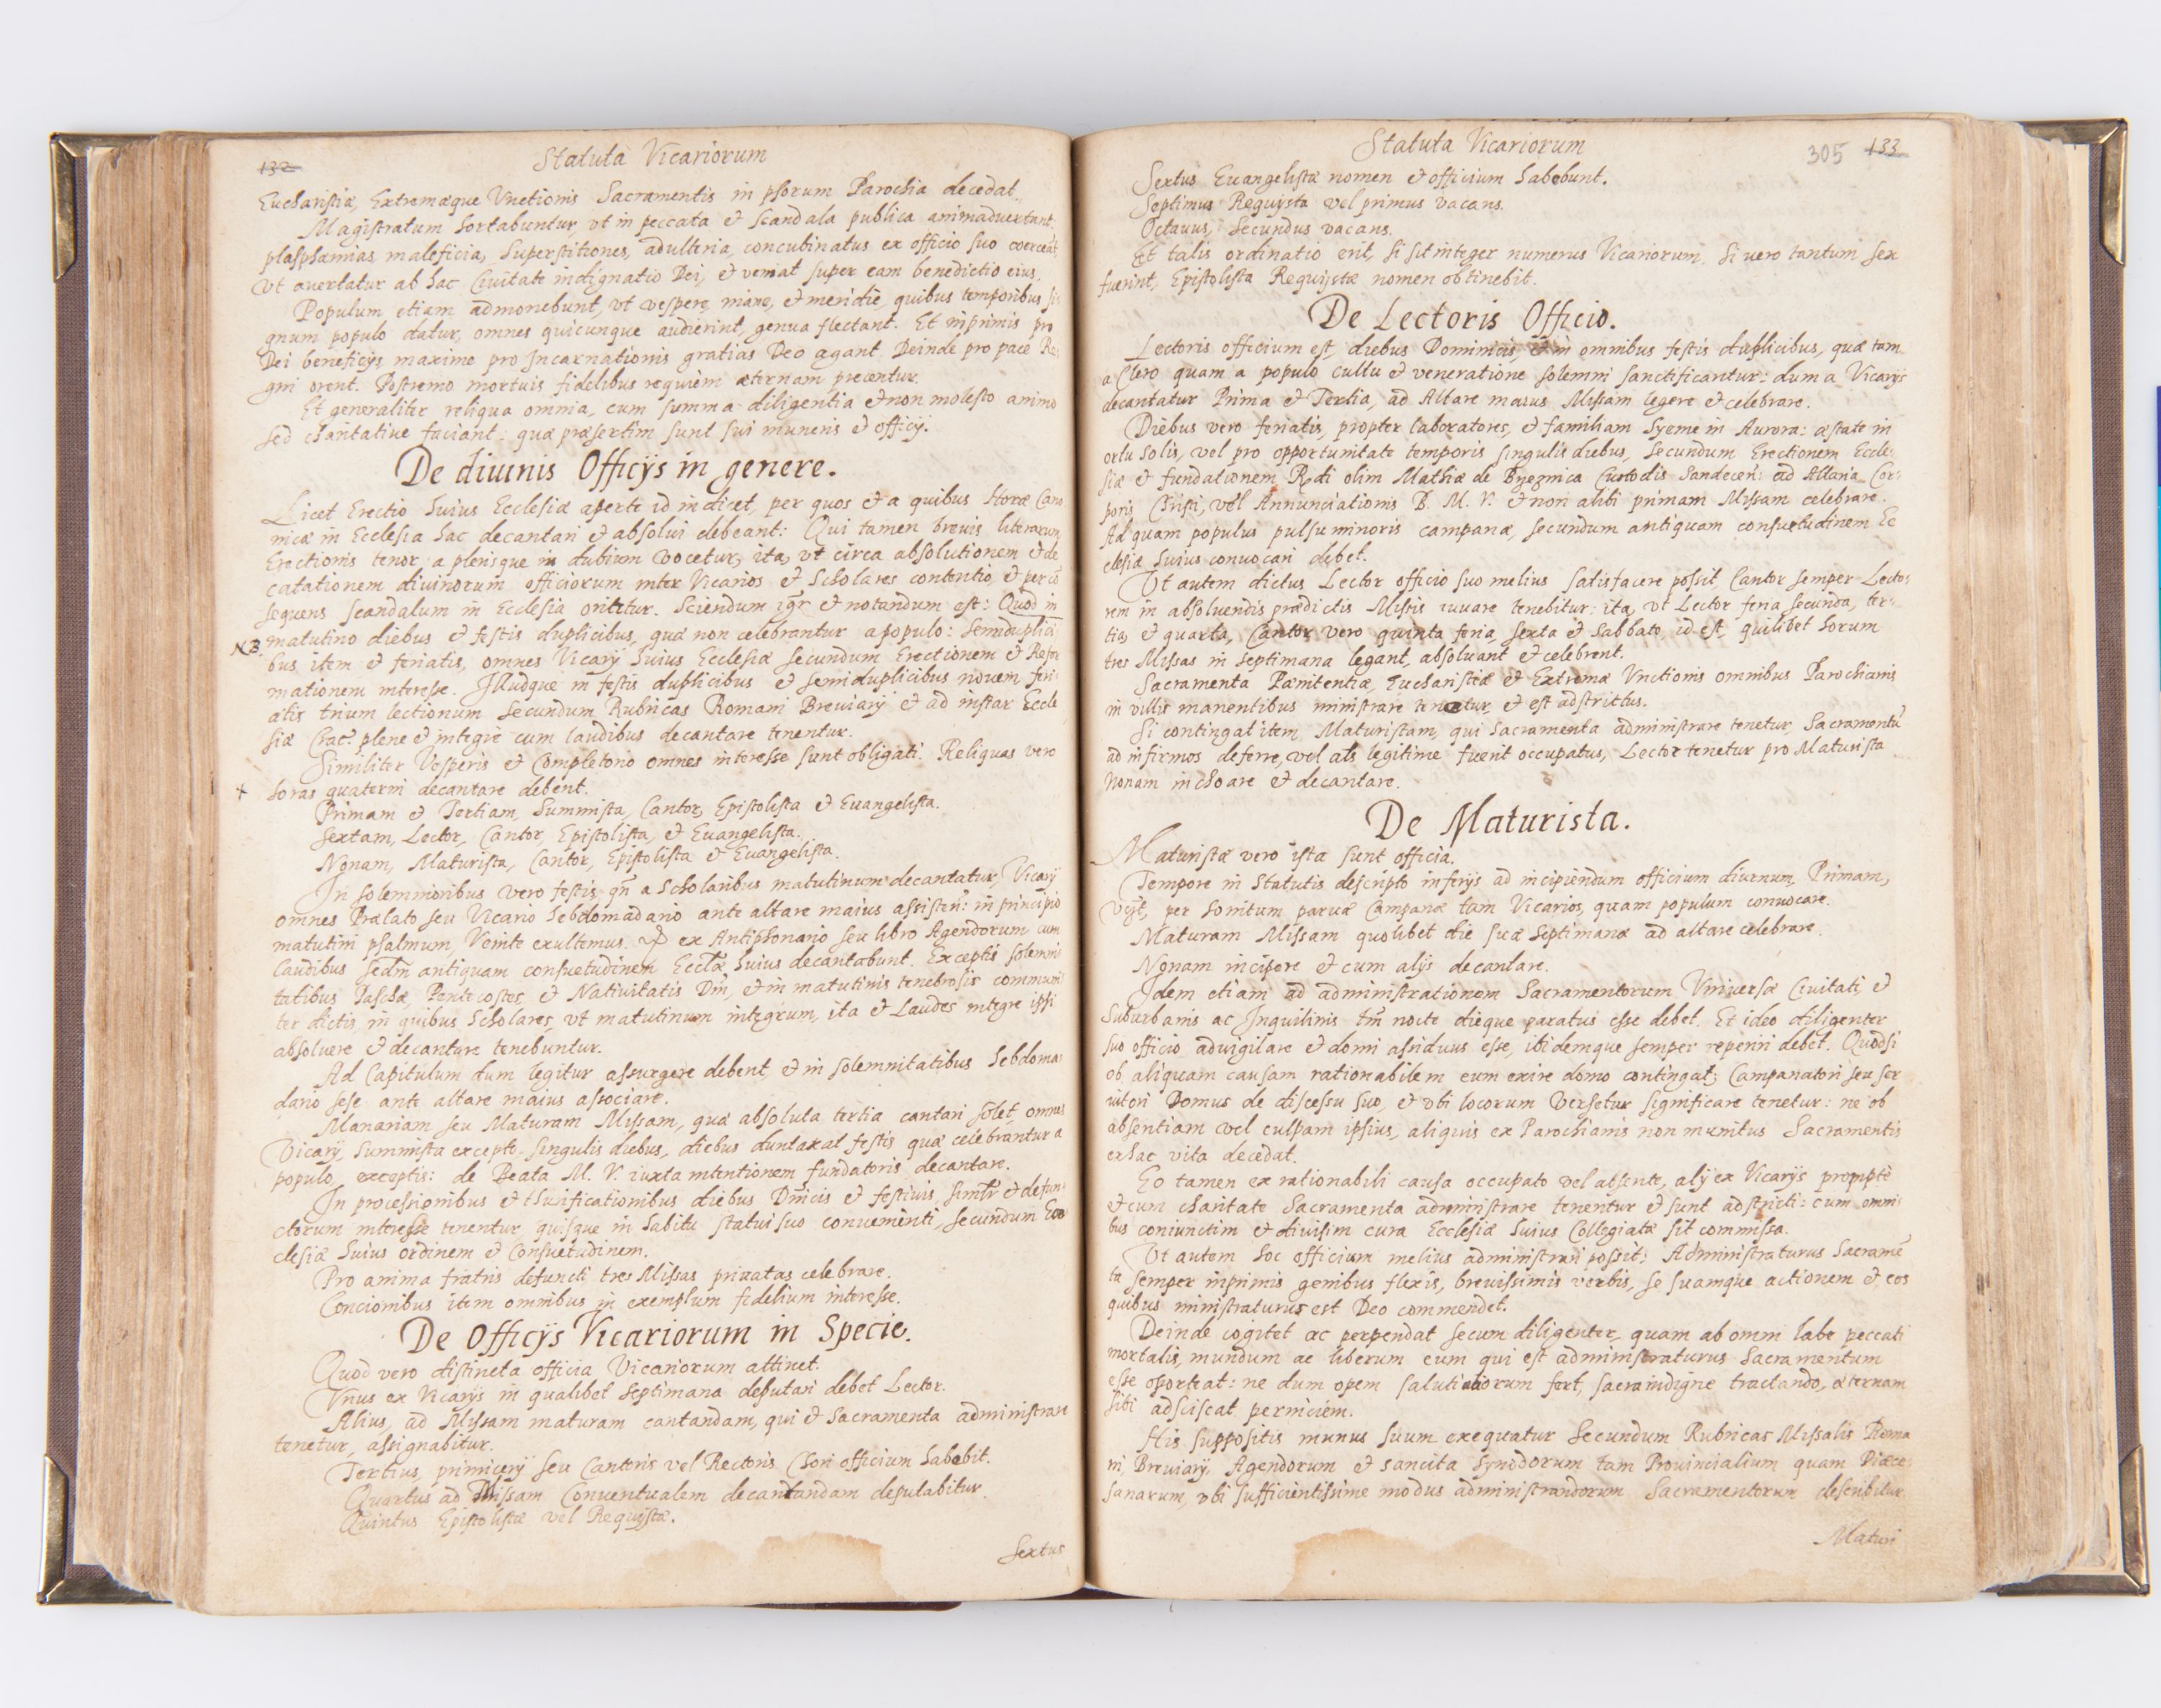 132
Statuta Vicariorum
Eucharistiæ, Extremæque Vnctionis Sacramentis in psorum Parochia decedat.
Magistratum hortabuntur, vt in peccata & scandala publica animaduertant,
plasphæmias, maleficia, superstitiones, adulteria, concubinatus ex officio suo coerceāt,
vt auertatur ab hac Ciuitate indignatio Dei, & veniat super eam benedictio eius.
Populum etiam admonebunt, vt vespere, mane, & meridie, quibus temporibus si-
gnum populo datur, omnes quicunque audierint, genua flectant. Et inprimis pro
Dei beneficijs maxime pro Jncarnationis gratias Deo agant. Deinde pro pace Re-
gni orent. Postremo mortuis fidelibus requiem æternam precentur.
Et generaliter reliqua omnia, cum summa diligentia & non molesto animo
sed charitatiue faciant: quæ præsertim sunt sui muneris & officij.
De diuinis Officijs in genere.
Licet Erectio huius Ecclesiæ aperte id indicet, per quos & a quibus Horæ Cano
nicæ in Ecclesia hac decantari & absolui debeant: Qui tamen breuis literarum
Erectionis tenor a plerisque in dubium vocetur, ita, vt circa absolutionem & de
catationem diuinorum officiorum inter Vicarios & Scholares contentio, & per cō
sequens scandalum in Ecclesia oritetur. Sciendum igr̄ & notandum est: Quod in
NB. matutino diebus & festis duplicibus, quæ non celebrantur a populo: semiduplici
bus item & feriatis, omnes Vicarij huius Ecclesiæ secundum Erectionem & Refor
mationem interesse. Jlludque in festis duplicibus & semiduplicibus nouem, feri-
atis trium lectionum secundum Rubricas Romani Breuiarij & ad instar Eccle
siæ Crac: plene & integre cum laudibus decantare tenentur.
Similiter Vesperis & Completorio omnes interesse sunt obligati. Reliquas vero
+ horas quaterni decantare debent.
Primam & Tertiam, Summista, Cantor, Epistolista & Euangelista.
Sextam, Lector, Cantor, Epistolista, & Euangelista.
Nonam, Maturista, Cantor, Epistolista & Euangelista.
Jn solemnioribus vero festis, qn̄ a Scholaribus matutinum decantatur, Vicarij
omnes Prælato seu Vicario hebdomadario ante altare maius assisten: in principio
matutini psalmum, Venite exultemus. ex Antiphonario seu libro Agendorum cum
laudibus secdm̄ antiquam consuetudinem Eccl̄æ huius decantabunt. Exceptis solemni
tatibus Paschæ, Pentecostes, & Natiuitatis Dn̄i, & in matutinis tenebrosis communi
ter dictis, in quibus Scholares, vt matutinum integrum, ita & Laudes integre ipsi
absoluere & decantare tenebuntur.
Ad Capitulum dum legitur assurgere debent, & in solemnitatibus hebdoma-
dario sese ante altare maius associare.
Manariam seu Maturam Missam, quæ absoluta tertia cantari solet, omnes
Vicarij, Summista excepto, singulis diebus, diebus duntaxat festis, quæ celebrantur a
populo exceptis: de Beata M. V. iuxta intentionem fundatoris decantare.
Jn processionibus & thurificationibus diebus Dn̄icis & festiuis, similr̄ & defun-
ctorum interesse tenentur, quisque in habitu statui suo conuenienti, secundum Ec
clesiæ huius ordinem & Consuetudinem.
Pro anima fratris defuncti tres Missas priuatas celebrare.
Concionibus item omnibus in exemplum fidelium interesse.
De Officijs Vicariorum in Specie.
Quod vero distincta officia Vicariorum attinet.
Vnus ex Vicarijs in qualibet septimana deputari debet Lector.
Alius, ad Missam maturam cantandam, qui & Sacramenta administrare
tenetur, assignabitur.
Tertius, primicerij seu Cantoris vel Rectoris Chori officium habebit.
Quartus ad Missam Conuentualem decantandam deputabitur.
Quintus Epistolistæ vel Requistæ.
Sextus
Statuta Vicariorum
305 133
Sextus Euangelistæ nomen & officium habebunt.
Septimus Requysta vel primus vacans.
Octauus, Secundus vacans.
Et talis ordinatio erit, si sit integer numerus Vicariorum. Si uero tantum sex
fuerint, Epistolista Requystæ nomen obtinebit.
De Lectoris Officio.
Lectoris officium est, diebus Dominicis, & in omnibus festis duplicibus, quæ tam
a Clero quam a populo cultu & veneratione solemni sanctificantur: dum a Vicarijs
decantatur Prima & Tertia, ad Altare maius Missam legere & celebrare.
Diebus vero feriatis, propter laboratores, & familiam hyeme in Aurora: æstate in
ortu solis, vel pro opportunitate temporis singulis diebus, secundum Erectionem Eccle-
siæ & fundationem Rn̄di olim Mathiæ de Byeznica Custodis Sandecen: ad Altaria Cor-
poris Christi, vel Annunciationis B. M. V. & non alibi primam Missam celebrare.
Ad quam populus pulsu minoris campanæ, secundum antiquam consuetudinem Ec
clesiæ huius conuocari debet.
Vt autem dictus Lector officio suo melius satisfacere possit, Cantor semper Lecto-
rem in absoluendis prædictis Missis iuuare tenebitur: ita, vt Lector feria secunda, ter-
tia, & quarta, Cantor vero quinta feria, sexta & Sabbato, id est, quilibet horum
tres Missas in septimana legant, absoluant & celebrent.
Sacramenta Pænitentiæ, Eucharistiæ & Extremæ Vnctionis omnibus Parochianis
in villis manentibus ministrare tenetur, & est adstrictus.
Si contingat item, Maturistam, qui Sacramenta administrare tenetur, Sacramentū
ad infirmos deferre, vel als legitime fuerit occupatus, Lector tenetur pro Maturista
Nonam inchoare & decantare.
De Maturista.
Maturistæ vero ista sunt officia.
Tempore in Statutis descripto inferijs ad incipiendum officium diurnum, Primam,
per sonitum paruæ Campanæ tam Vicarios, quam populum conuocare.
Maturam Missam quolibet die suæ septimanæ ad altare celebrare.
Nonam incipere & cum alijs decantare.
Jdem etiam ad administrationem Sacramentorum Vniuersæ Ciuitati, &
Suburbanis ac Jnquilinis tm̄ nocte dieque paratus esse debet. Et ideo diligenter
suo officio aduigilare & domi assiduus esse, ibidemque semper reperiri debet. Quodsi
ob aliquam causam rationabilem eum exire domo contingat; Campanatori seu ser
uitori Domus de discessu suo, & vbi locorum versetur significare tenetur: ne ob
absentiam vel culpam ipsius, aliquis ex Parochianis non munitus Sacramentis
ex hac vita decedat.
Eo tamen ex rationabili causa occupato vel absente, alij ex Vicarijs prompte
& cum charitate Sacramenta administrare tenentur & sunt adstricti: cum omni-
bus coniunctim & diuisim cura Ecclesiæ huius Collegiatæ sit commissa.
Vt autem hoc officium melius administrari possit; Administraturus Sacramē
ta semper inprimis genibus flexis, breuissimis verbis, se suamque actionem & eos
quibus ministraturus est Deo commendet.
Deinde cogitet ac perpendat secum diligenter, quam ab omni labe peccati
mortalis, mundum ac liberum eum qui est administraturus Sacramentum
esse oporteat: ne dum opem saluti aliorum fert, sacra indigne tractando, æternam
sibi adsciscat perniciem.
His suppositis munus suum exequatur secundum Rubricas Missalis Roma
ni, Breuiarij, Agendorum & sancita Synodorum tam Prouincialium quam Diæce-
sanarum, vbi sufficientissime modus administrandorum Sacramentorum describitur.
Maturi